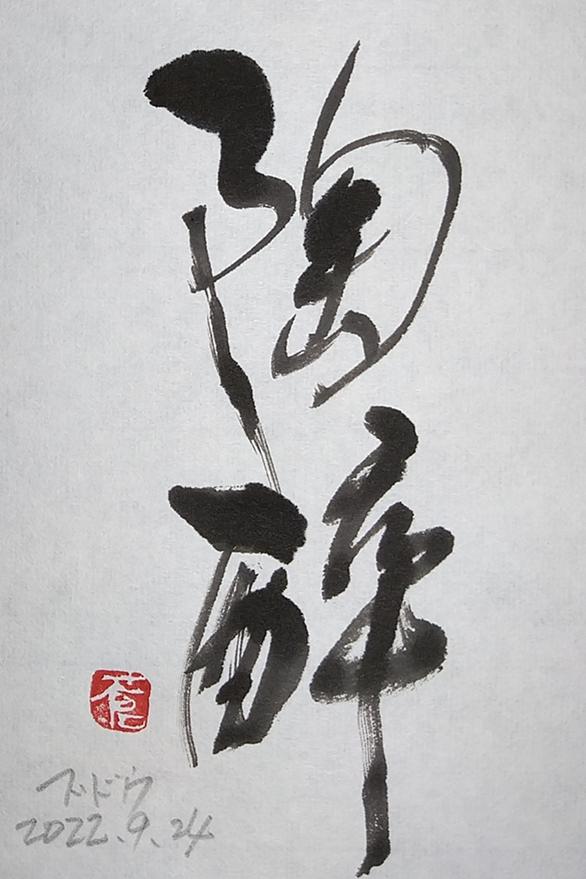 陶酔
ブドウ
2022.9.24